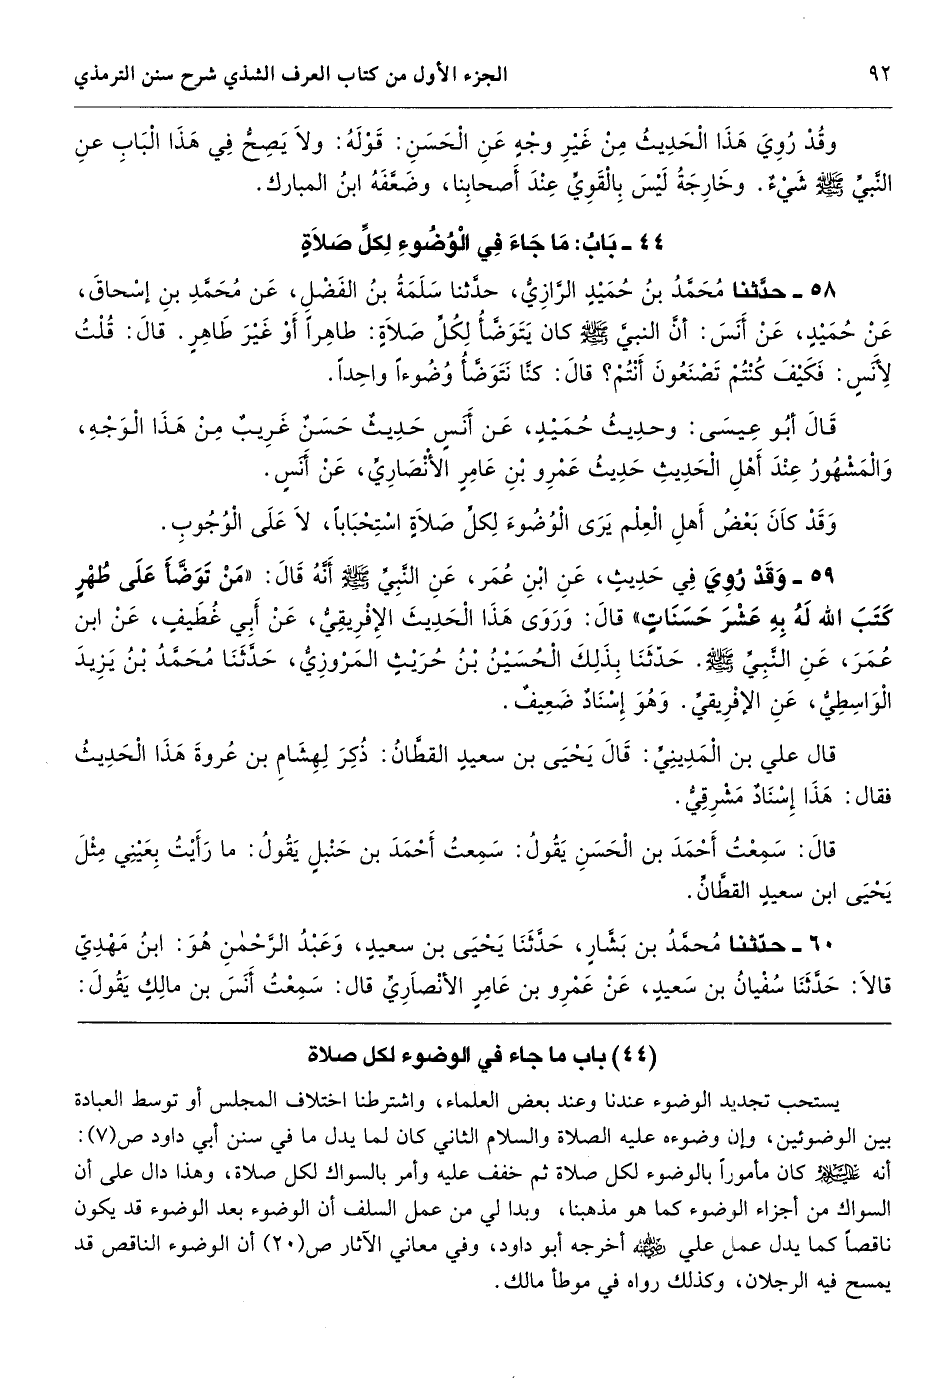 ٩٢
الجزء الأول من كتاب العرف الشذي شرح سنن الترمذي
وقُدْ رُوِيَ هَذَا الْحَدِيثُ مِنْ غَيْرِ وجْهٍ عَنِ الْحَسَنِ: قَوْلَهُ: ولاَ يَصِحُّ فِي هَذَا الْبَابِ عنِ
النَّبيِّ ﷺ شَيْءٌ. وخَارِجَةُ لَيْسَ بِالْقَوِيِّ عِنْدَ أَصحابِنا، وضَعَّفَهُ ابنُ المبارك.
٤٤ ـ بَابُ: مَا جَاءَ فِي الْوُضُوءِ لِكلِّ صَلاَةٍ
٥٨ ـ حدَّثنا مُحَمَّدُ بنُ حُمَيْدٍ الرَّازِيُّ، حدَّثنا سَلَمَةُ بنُ الفَضْلِ، عَن مُحَمَّدِ بنِ إسْحاقَ،
عَنْ حُمَيْدٍ، عَنْ أنَسَ: أنَّ النبيَّ ﷺ كان يَتَوَضَّأُ لِكُلِّ صَلاَةٍ: طاهِراً أوْ غَيْرَ طَاهِرٍ. قالَ: قُلْتُ
لِأَنَسٍ: فَكَيْفَ كُنْتُمْ تَصْنَعُونَ أَنْتُمْ؟ قالَ: كنَّا نَتَوَضَّأُ وُضُوءاً واحِداً.
قَالَ أَبُو عِيسَى: وحدِيثُ حُمَيْدٍ، عَن أَنَسٍ حَدِيثٌ حَسَنٌ غَرِيبٌ مِنْ هَذَا الْوَجْهِ،
وَالْمَشْهُورُ عِنْدَ أَهْلِ الْحَدِيثِ حَدِيثُ عَمْرِو بْنِ عامِرٍ الأَنْصَارِيِّ، عَنْ أَنَسٍ.
وَقَدْ كاَنَ بَعْضُ أَهلِ العِلْمِ يَرَى الْوُضُوءَ لِكلِّ صَلاَةٍ اسْتِحْبَاباً، لاَ عَلَى الْوُجُوبِ.
٥٩ ـ وَقَدْ رُوِيَ فِي حَدِيثٍ، عَنِ ابْنِ عُمَر، عَنِ النَّبِيِّ ﷺ أَنَّهُ قَالَ: «مَنْ تَوَضَّأَ عَلَى طُهْرٍ
كَتَبَ الله لَهُ بِهِ عَشْرَ حَسَنَاتٍ» قالَ: وَرَوَى هَذَا الْحَدِيثَ الإفْرِيقيُّ، عَنْ أَبي غُطَيفٍ، عَنْ ابن
عُمَرَ، عَنِ النَّبِيِّ ﷺ. حَدّثَنَا بِذَلِكَ الْحُسَيْنُ بْنُ حُرَيْثٍ المَرْوزِيُّ، حَدَّثَنَا مُحَمَّدُ بْنُ يَزِيدَ
الْوَاسِطِيُّ، عَنِ الإفْرِيقيِّ. وَهُوَ إِسْنَادٌ ضَعِيفٌ.
قال علي بن الْمَدِينِيِّ: قَالَ يَحْيَى بن سعيدٍ القطَّانُ: ذُكِرَ لِهِشَامِ بن عُروةَ هَذَا الْحَدِيثُ
فقال: هَذَا إسْنَادٌ مَشْرِقِيٌّ.
قالَ: سَمِعْتُ أَحْمَدَ بن الْحَسَنِ يَقُولُ: سَمِعتُ أَحْمَدَ بن حَنْبلٍ يَقُولُ: ما رَأَيْتُ بِعَيْنِي مِثْلَ
يَحْيَى ابن سعيدٍ القطَّانِّ.
٦٠ ـ حدّثنا مُحمَّدُ بن بَشَّارٍ، حَدَّثَنَا يَحْيَى بن سعيدٍ، وَعَبْدُ الرَّحْمٰنِ هُوَ: ابنُ مَهْدِيّ
قالاَ: حَدَّثَنَا سُفْيانُ بن سَعيدٍ، عَنْ عَمْرِو بن عَامِرٍ الأنْصارِيِّ قال: سَمِعْتُ أَنَسَ بن مالِكٍ يَقُولَ:
(٤٤) باب ما جاء في الوضوء لكل صلاة
يستحب تجديد الوضوء عندنا وعند بعض العلماء، واشترطنا اختلاف المجلس أو توسط العبادة
بين الوضوئين، وإن وضوءه عليه الصلاة والسلام الثاني كان لما يدل ما في سنن أبي داود ص(٧):
أنه عليه السلام كان مأموراً بالوضوء لكل صلاة ثم خفف عليه وأمر بالسواك لكل صلاة، وهذا دال على أن
السواك من أجزاء الوضوء كما هو مذهبنا، وبدا لي من عمل السلف أن الوضوء بعد الوضوء قد يكون
ناقصاً كما يدل عمل علي رضي الله عنه أخرجه أبو داود، وفي معاني الآثار ص(٢٠) أن الوضوء الناقص قد
يمسح فيه الرجلان، وكذلك رواه في موطأ مالك.